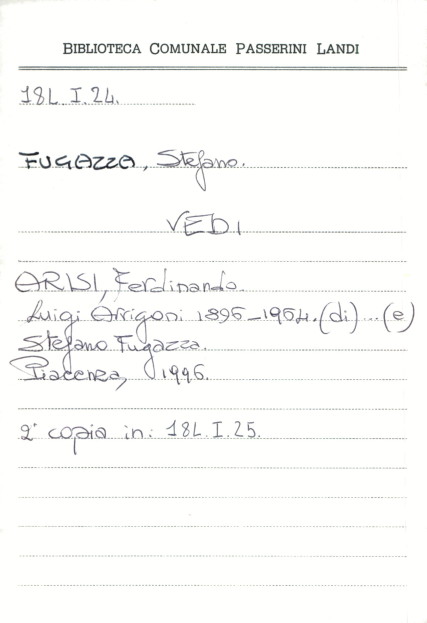 BIBLIOTECA COMUNALE PASSERINI LANDI
18L.I.24.
FUGAZZA, Stefano.
VEDI
ARISI, Ferdinando.
Luigi Arrigoni 1896-1964. (di)...(e)
Stefano Fugazza.
Piacenza, 1996.
2ª copia in: 18L.I.25.